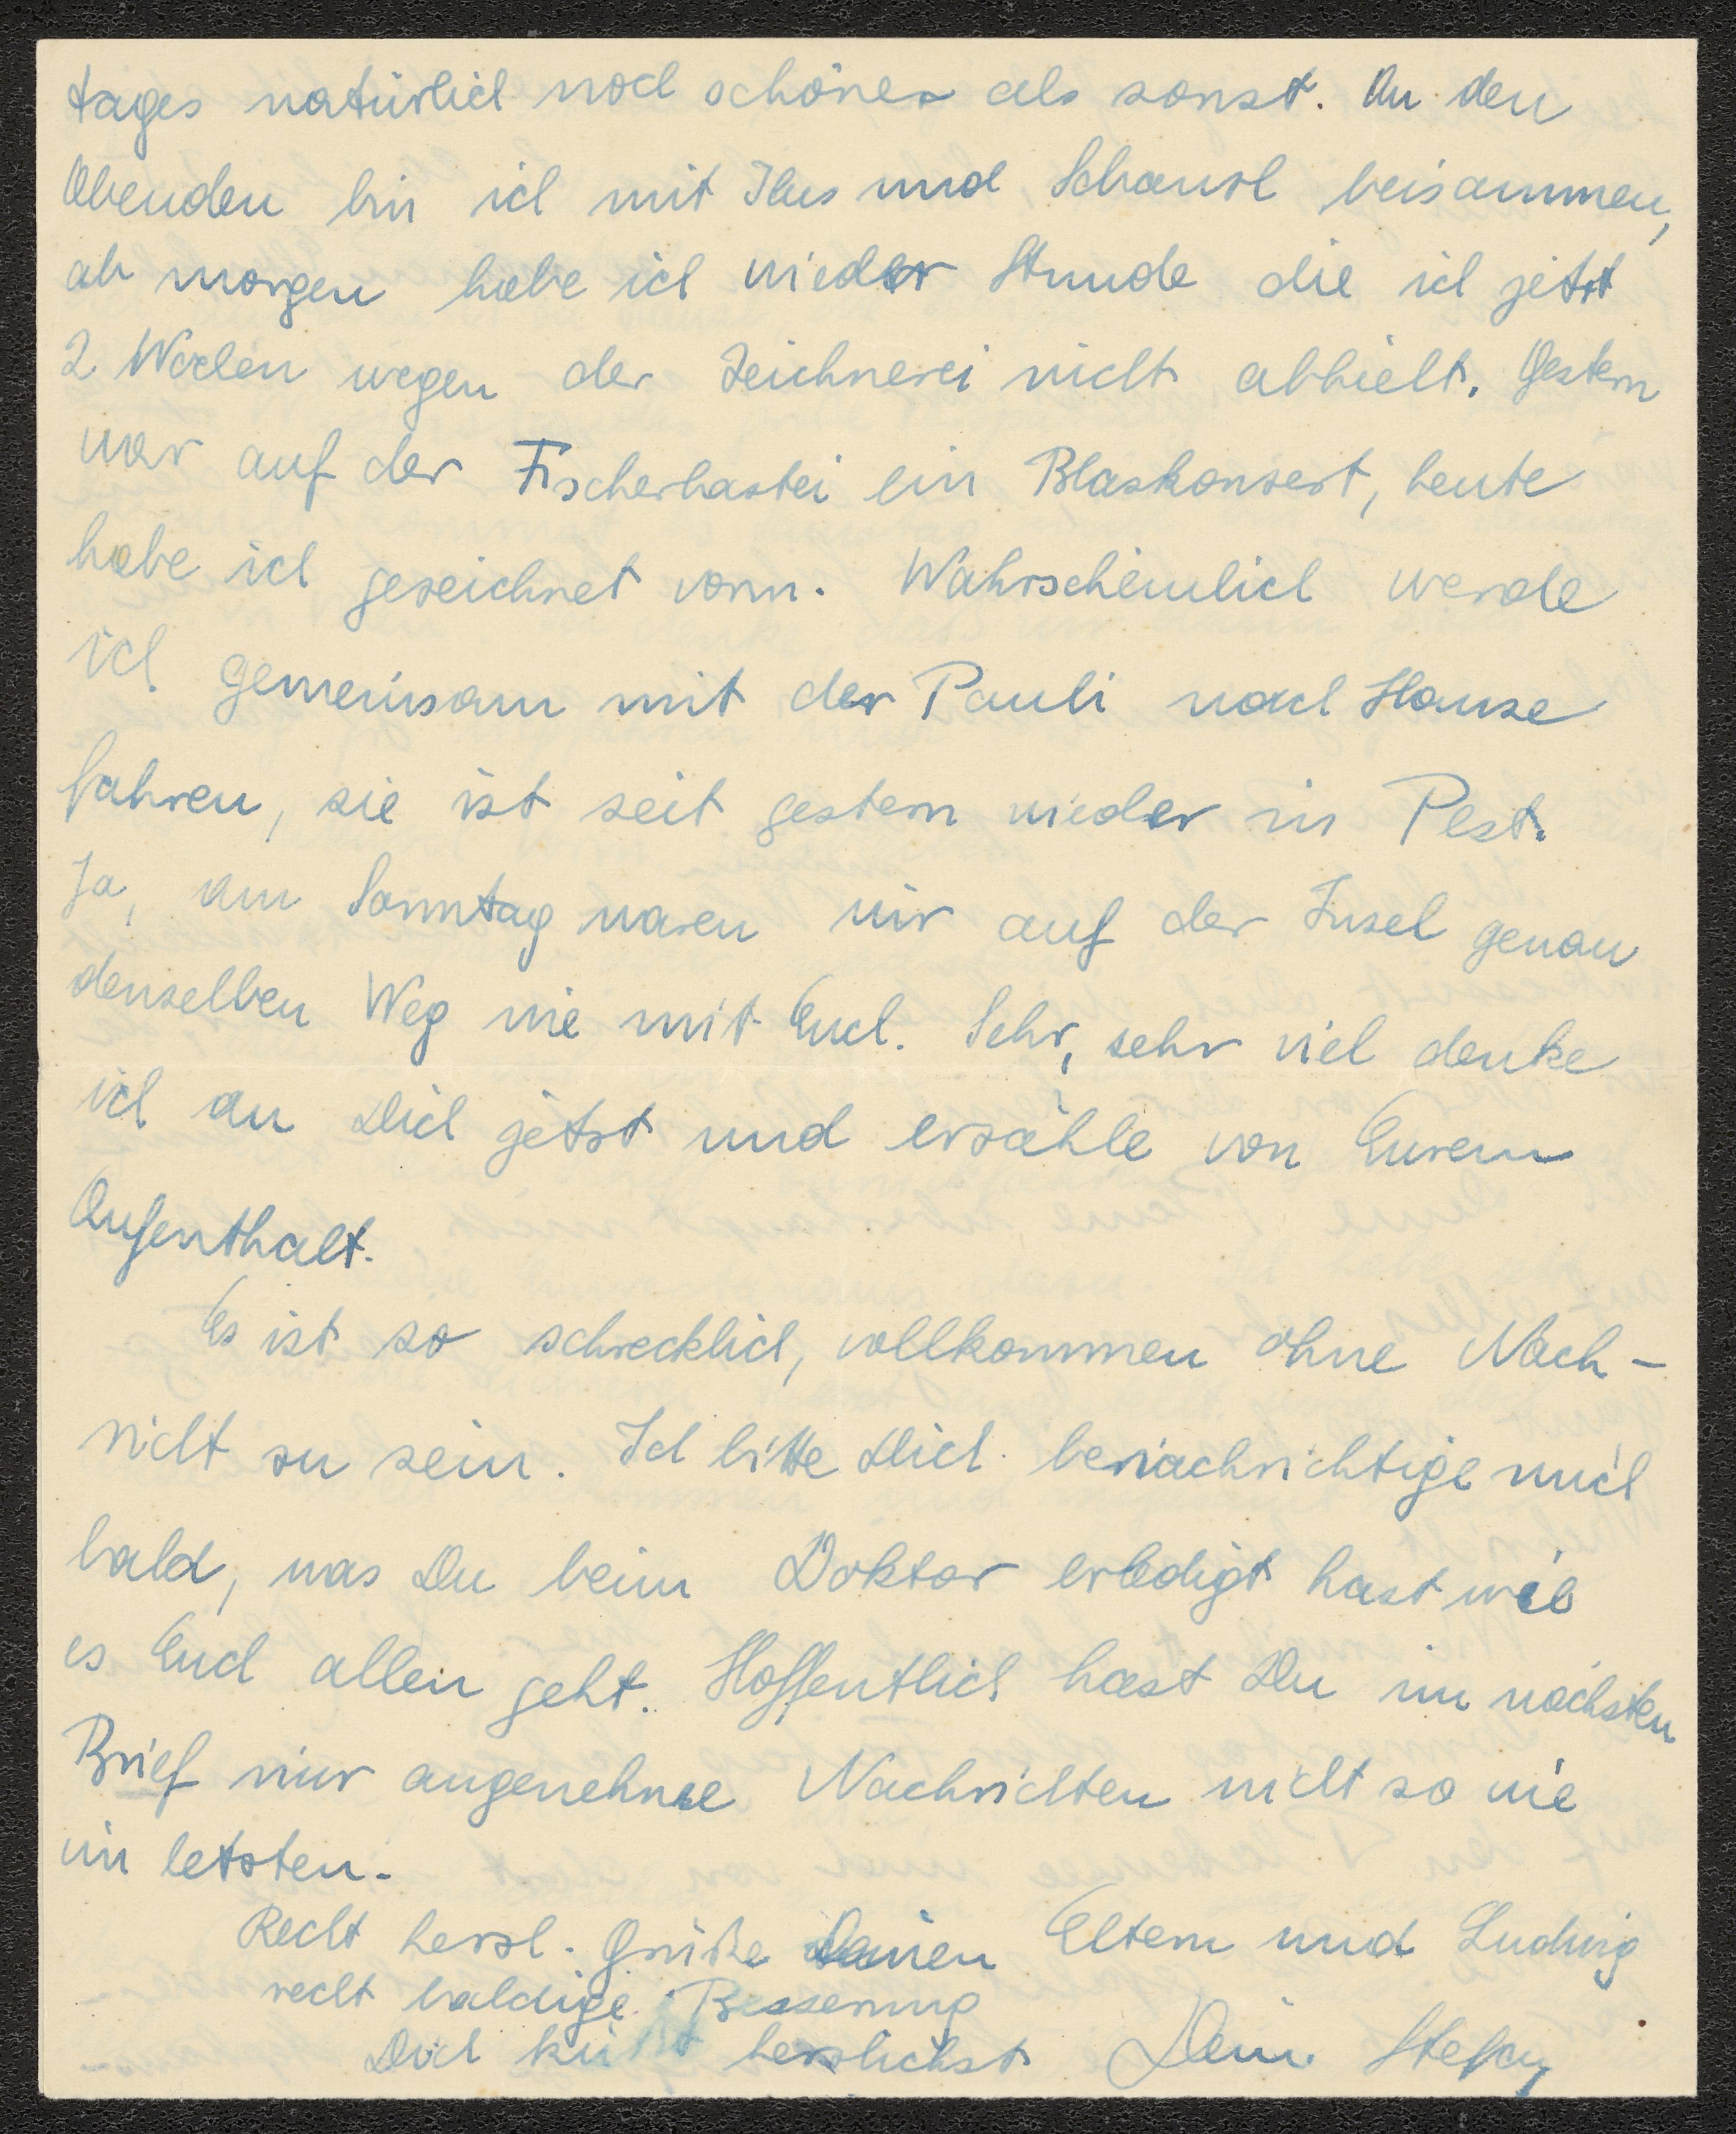 tages natürlich noch schöner als sonst. An den
Abenden bin ich mit Ilus und beisammen,
ab morgen habe ich wieder Stunde die ich jetzt
2 Wochen wegen der Zeichnerei nicht abhielt. Gestern
war auf der Fischerbastei ein Blaskonzert, heute
habe ich gezeichnet vorm. Wahrscheinlich werde
ich gemeinsam mit der Pauli nach Hause
fahren, sie ist seit gestern wieder in Pest.
Ja, am Sonntag waren wir auf der Insel genau
denselben Weg wie mit Euch. Sehr, sehr viel denke
ich an Dich jetzt und erzähle von Eurem
Aufenthalt.
Es ist so schrecklich, vollkommen ohne Nach-
richt zu sein. Ich bitte Dich benachrichtige mich
bald, was Du beim Doktor erledigt hast wie
es Euch allen geht. Hoffentlich hast Du im nächsten
Brief nur angenehme Nachrichten nicht so wie
im letzten.
Recht herzl. Grüße Deinen Eltern und Ludwig
recht baldige Besserung
Dich küßt herzlichst Dein Stefan